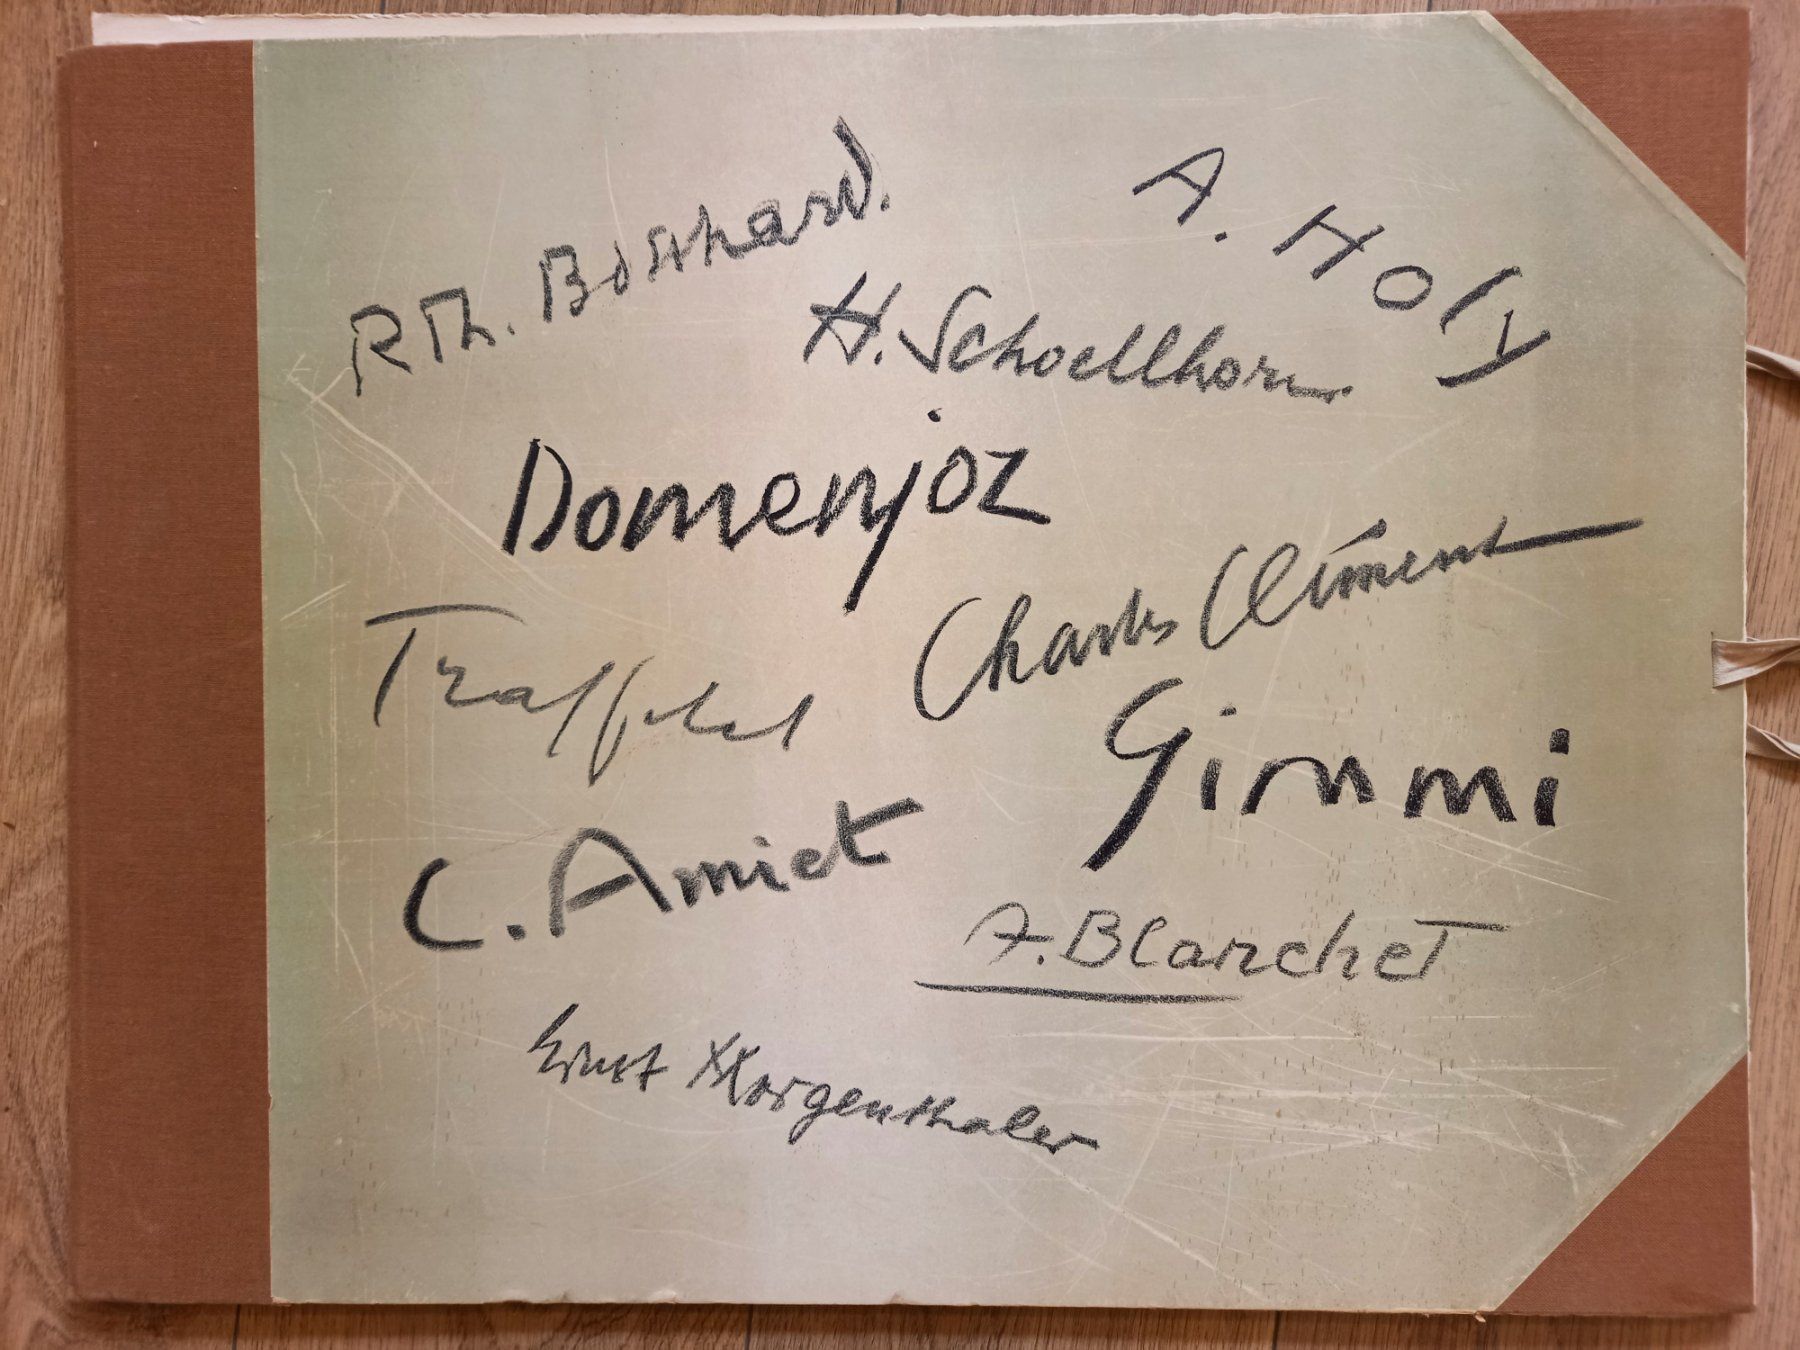 R Th. Bosshard.
A. Holy
H. Schoellhorn
Domenjoz
Charles Clément
Traffelet
Gimmi
C. Amiet
A. Blanchet
Ernst Morgenthaler